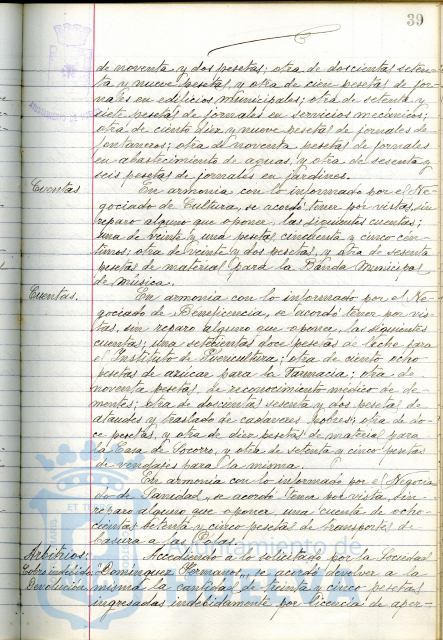 39
de noventa y dos pesetas; otra de doscientas seten-
ta y nueve pesetas, y otra de cien pesetas de jor-
nales en edificios municipales; otra de setenta y
siete pesetas de jornales en servicios mecánicos;
otra de ciento diez y nueve pesetas de jornales de
fontaneros; otra de noventa pesetas de jornales
en abastecimiento de aguas, y otra de sesenta y
seis pesetas de jornales en jardines.
Cuentas En armonía con lo informado por el Ne-
gociado de Cultura, se acordó tener por vistas, sin
reparo alguno que oponer, las siguientes cuentas;
una de veinte y una pesetas cincuenta y cinco cén-
timos; otra de veinte y dos pesetas, y otra de sesenta
pesetas de material para la Banda Municipal
de música.
Cuentas. En armonía con lo informado por el Ne-
gociado de Beneficencia, se acordó tener por vis-
tas, sin reparo alguno que oponer, las siguientes
cuentas; una setecientas doce pesetas de leche para
el Instituto de Puericultura; otra de ciento ocho
pesetas de azúcar para la Farmacia; otra de
noventa pesetas de reconocimiento médico de de-
mentes; otra de doscientas sesenta y dos pesetas de
ataudes y traslado de cadáveres pobres; otra de do-
ce pesetas, y otra de diez pesetas de material para
la Casa de Socorro, y otra de setenta y cinco pesetas
de vendajes para la misma.
En armonía con lo informado por el Negocia-
do de Sanidad, se acordó tener por vista, sin
reparo alguno que oponer, una cuenta de ocho-
cientas setenta y cinco pesetas de transportes de
basura a las Rolas.
Arbitrios: Accediendo a lo solicitado por la Sociedad
Cobro indebido "Domínguez Hermanos", se acordó devolver a la
Devolución misma la cantidad de treinta y cinco pesetas
ingresadas indebidamente por licencia de aper-